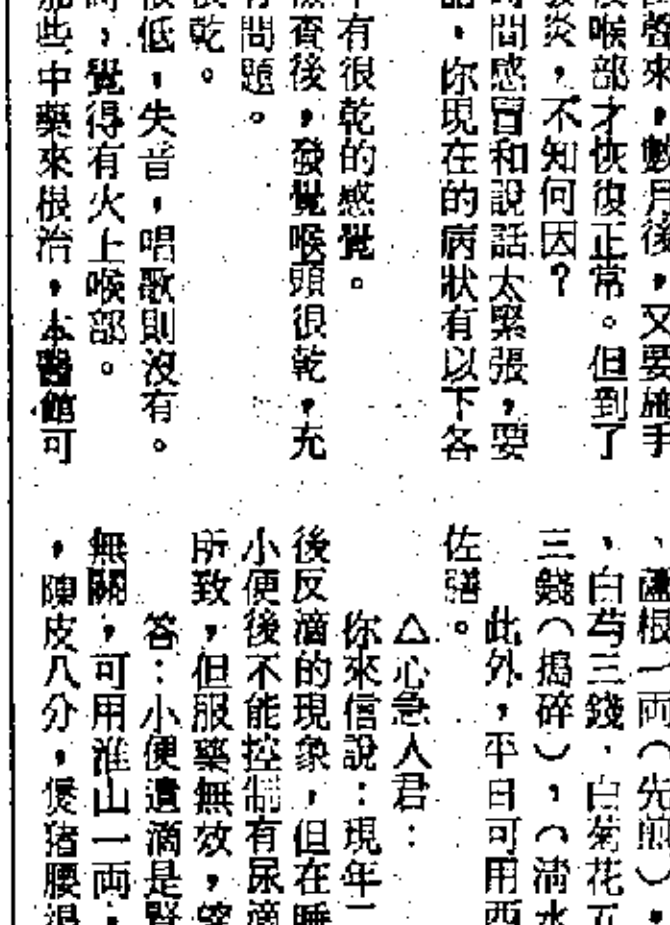 聲來，數月後，又要施手
喉部才恢復正常。但到了
炎，不知何因？
間感冒和說話太緊張，要
，你現在的病狀有以下各
有很乾的感覺。
後，發覺喉頭很乾，充
問題。
乾。
低，失音，唱歌則沒有。
，覺得有火上喉部。
些中藥來根治，本醫館可
、蘆根一両（先煎），
、白芍三錢、白菊花五
三錢（搗碎），（清水
此外，平日可用西
佐膳。
△心急人君：
你來信說：現年
後反滴的現象，但在睡
小便後不能控制有尿滴
所致，但服藥無效，望
答：小便遺滴是腎
無關，可用淮山一両，
，陳皮八分，煲猪腰湯